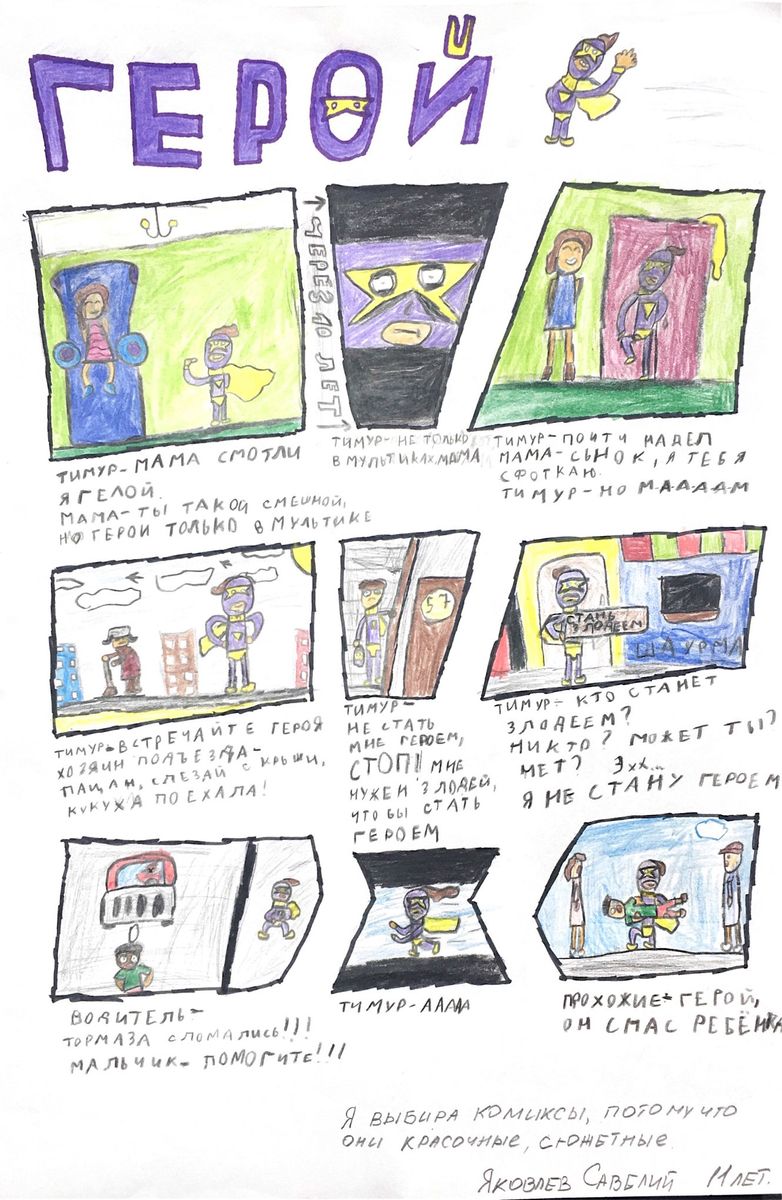 ГЕРОЙ
ТИМУР-МАМА СМОТЛИ
Я ГЕЛОЙ.
МАМА-ТЫ ТАКОЙ СМЕШНОЙ,
НО ГЕРОИ ТОЛЬКО В МУЛЬТИКЕ
ЧЕРЕЗ 10 ЛЕТ
ТИМУР-НЕ ТОЛЬКО
В МУЛЬТИКАХ, МАМА
ТИМУР-ПОЧТИ НАДЕЛ
МАМА-СЫНОК, Я ТЕБЯ
СФОТКАЮ.
ТИМУР-НО МААААМ
ТИМУР-ВСТРЕЧАЙТЕ ГЕРОЯ
ХОЗЯИН ПОДЪЕЗДА-
ПАЦАН, СЛЕЗАЙ С КРЫШИ,
КУКУХА ПОЕХАЛА!
57
ТИМУР-
НЕ СТАТЬ
МНЕ ГЕРОЕМ,
СТОП! МНЕ
НУЖЕН ЗЛОДЕЙ,
ЧТО БЫ СТАТЬ
ГЕРОЕМ
СТАНЬ
ЗЛОДЕЕМ
ШАУРМА
ТИМУР-КТО СТАНЕТ
ЗЛОДЕЕМ?
НИКТО? МОЖЕТ ТЫ?
НЕТ? ЭХХ...
Я НЕ СТАНУ ГЕРОЕМ
ВОДИТЕЛЬ-
ТОРМАЗА СЛОМАЛИСЬ!!!
МАЛЬЧИК-ПОМОГИТЕ!!!
ТИМУР-ААААА
ПРОХОЖИЕ-ГЕРОЙ,
ОН СПАС РЕБЁНКА
Я ВЫБИРА КОМИКСЫ, ПОТОМУ ЧТО
ОНИ КРАСОЧНЫЕ, СЮЖЕТНЫЕ.
ЯКОВЛЕВ САВЕЛИЙ 11 ЛЕТ.